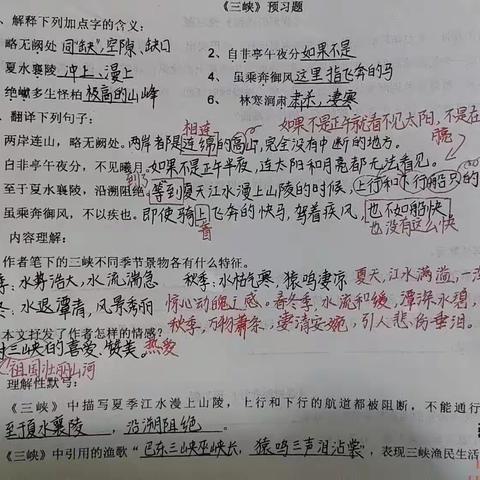 《三峡》预习题
、解释下列加点字的含义：
略无阙处 同"缺"，空隙、缺口 2、自非亭午夜分 如果不是
夏水襄陵 冲上、漫上 4、虽乘奔御风 这里指飞奔的马
绝巘多生怪柏 极高的山峰 6、林寒涧肃 肃杀，凄寒
、翻译下列句子：
相连 如果不是正午就看不见太阳，不是在
两岸连山，略无阙处。两岸都是连绵的高山，完全没有中断的地方。
自非亭午夜分，不见曦月。如果不是正午半夜，连太阳和月亮都无法看见。
至于夏水襄陵，沿溯阻绝。等到夏天江水漫上山陵的时候，上行和下行船只的
虽乘奔御风，不以疾也。即使骑上飞奔的快马，驾着疾风，也不如船快
着 也没有这么快
内容理解：
作者笔下的三峡不同季节景物各有什么特征。
季：水势浩大，水流湍急 秋季：水枯气寒，猿鸣凄凉 夏天，江水满溢，一
冬：水退潭清，风景秀丽 惊心动魄之感。春冬季，水流和缓，潭深水碧，
秋季，万物萧条，凄清安婉，引人悲伤垂泪。
本文抒发了作者怎样的情感？
对三峡的喜爱、赞美。热爱
祖国壮丽山河
理解性默写：
《三峡》中描写夏季江水漫上山陵，上行和下行的航道都被阻断，不能通行
至于夏水襄陵，沿溯阻绝。
《三峡》中引用的渔歌"巴东三峡巫峡长，猿鸣三声泪沾裳"，表现三峡渔民生活